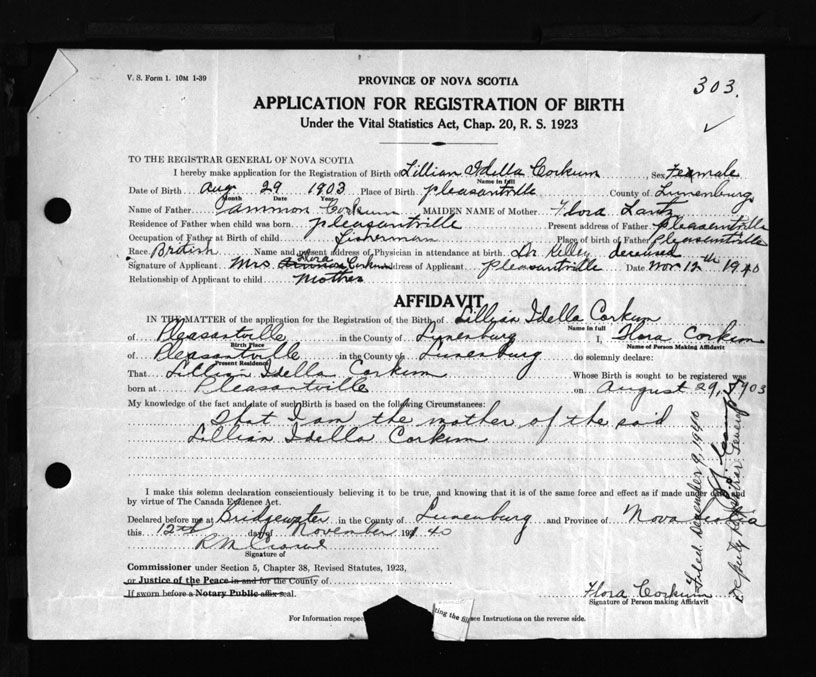 V. S. Form 1. 10M 1-39
303.
PROVINCE OF NOVA SCOTIA
APPLICATION FOR REGISTRATION OF BIRTH
Under the Vital Statistics Act, Chap. 20, R. S. 1923
TO THE REGISTRAR GENERAL OF NOVA SCOTIA
I hereby make application for the Registration of Birth of Lillian Idella Corkum Sex Female
Name in full
Date of Birth Aug 29 1903 Place of Birth Pleasantville County of Lunenburg
Month Date Year
Name of Father Corkum MAIDEN NAME of Mother Flora Lantz
Residence of Father when child was born Pleasantville Present address of Father Pleasantville
Occupation of Father at Birth of child Fisherman Place of birth of Father Pleasantville
Race British Name and present address of Physician in attendance at birth Dr Kelley deceased
Signature of Applicant Mrs Flora Corkum Address of Applicant Pleasantville Date Nov 12th 1940
Relationship of Applicant to child Mother
AFFIDAVIT
IN THE MATTER of the application for the Registration of the Birth of Lillian Idella Corkum
Name in full
of Pleasantville in the County of Lunenburg I, Flora Corkum
Birth Place Name of Person Making Affidavit
of Pleasantville in the County of Lunenburg do solemnly declare:
Present Residence
That Lillian Idella Corkum Whose Birth is sought to be registered was
born at Pleasantville on August 29, 1903
My knowledge of the fact and date of such Birth is based on the following Circumstances:
That I am the mother of the said
Lillian Idella Corkum
I make this solemn declaration conscientiously believing it to be true, and knowing that it is of the same force and effect as if made under oath and
by virtue of The Canada Evidence Act.
Declared before me at Bridgewater in the County of Lunenburg and Province of Nova Scotia
this 12th day of November 1940
Signature of
Commissioner under Section 5, Chapter 38, Revised Statutes, 1923,
or Justice of the Peace in and for the County of
If sworn before a Notary Public affix seal.
Flora Corkum
Signature of Person making Affidavit
For Information respecting the filing see Instructions on the reverse side.
Filed December 9, 1940
Deputy Registrar General